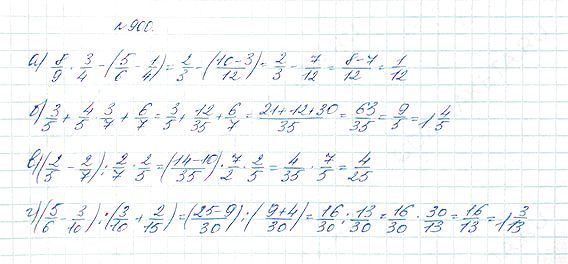 №900.
а) 8/9 · 3/4 - (5/6 - 1/4) = 2/3 - (10-3/12) = 2/3 - 7/12 = 8-7/12 = 1/12
б) 3/5 + 4/5 · 3/7 + 6/7 = 3/5 + 12/35 + 6/7 = 21+12+30/35 = 63/35 = 9/5 = 1 4/5
в) (2/5 - 2/7) : 2/7 · 2/5 = (14-10/35) · 7/2 · 2/5 = 4/35 · 7/5 = 4/25
г) (5/6 - 3/10) : (3/10 + 2/15) = (25-9/30) : (9+4/30) = 16/30 : 13/30 = 16/30 · 30/13 = 16/13 = 1 3/13